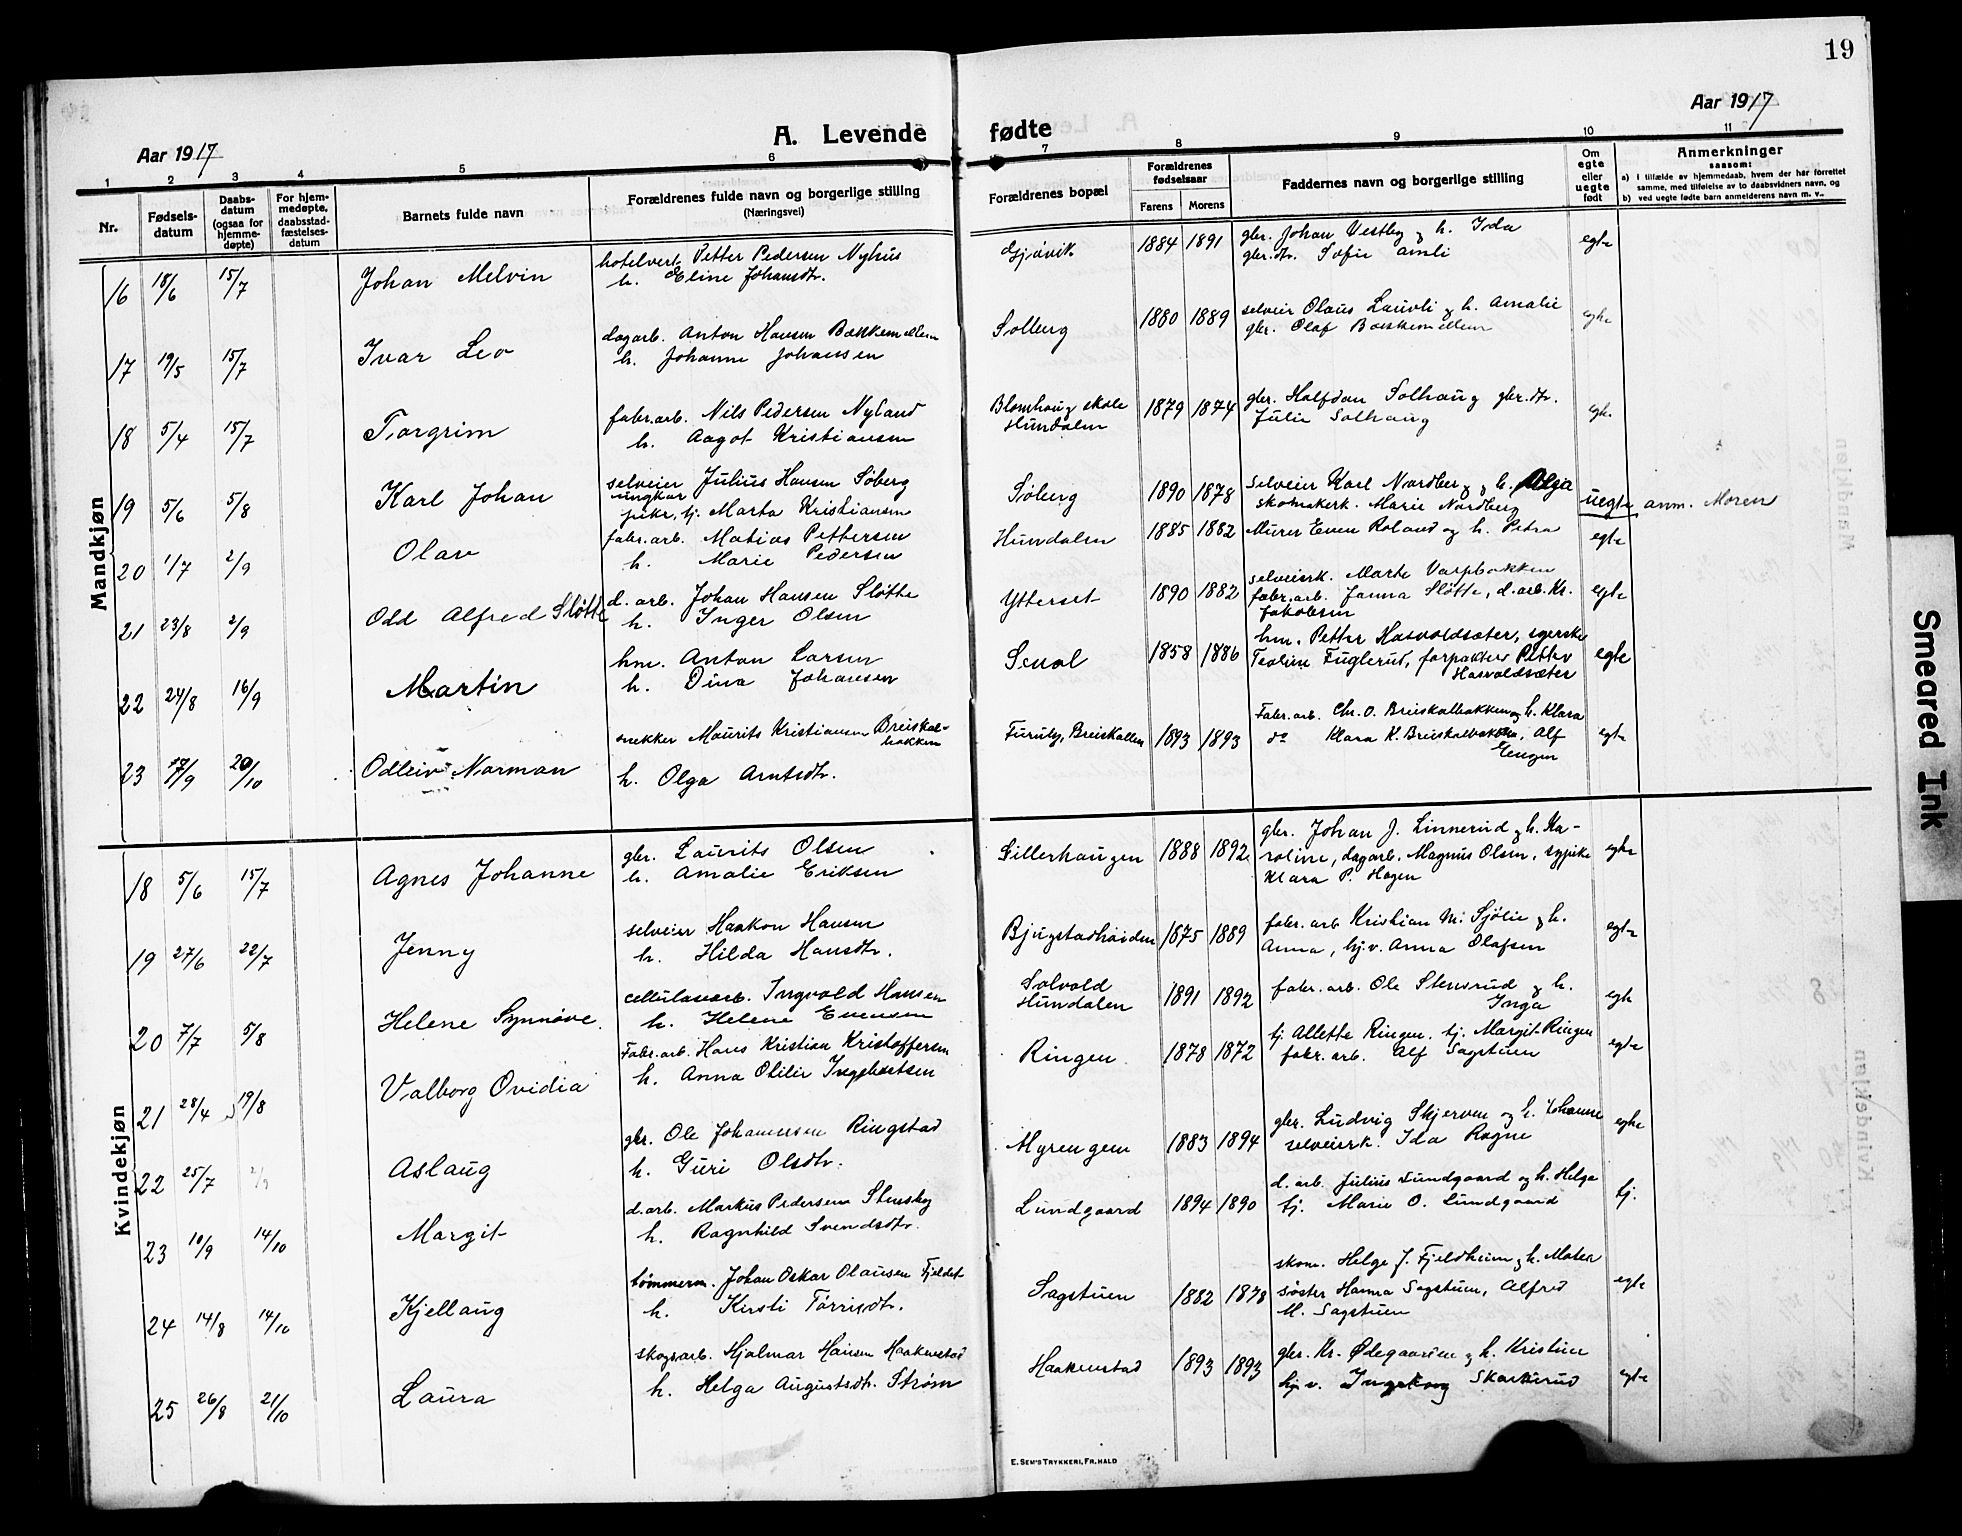 19
Aar 1917
A. Levende fødte
Aar 1917
1 2 3 4 5 6 7 8 9 10 11
Nr.
Fødsels-
datum
Daabs-
datum
(ogsaa for
hjemme-
døpte)
For hjem-
medøpte,
daabsstad-
fæstelses-
datum
Barnets fulde navn
Forældrenes fulde navn og borgerlige stilling
(Næringsvei)
Forældrenes bopæl
Forældrenes
fødselsaar
Farens Morens
Faddernes navn og borgerlige stilling
Om
egte
eller
uegte
født
Anmerkninger
saasom:
a) i tilfælde av hjemmedaab, hvem der har forrettet
samme, med tilføielse av to daabsvidners navn, og
b) ved uegte fødte barn anmelderens navn m. v..
Mandkjøn
16 18/6 15/7 Johan Melvin
hotelvert Petter Pedersen Nyhus
h. Eline Johansdtr.
Gjøvik 1884 1891
gbr. Johan Vestby og h. Ida
gbr.dtr. Sofie Amli
egte
17 19/5 15/7 Ivar Leo
dagarb. Anton Hansen Bækkemellem
h. Johanne Johansen
Solberg 1880 1889
selveier Olaus Lauvli og h. Amalie
gbr. Olaf Bækkemellem
egte
18 5/4 15/7 Torgrim
fabr.arb. Nils Pedersen Nyland
h. Aagot Kristiansen
Blomhaug skole
Hundalen
1879 1874
gbr. Halfdan Solhaug gbr.dtr.
Julie Solhaug
egte
19 5/6 5/8 Karl Johan
selveier Julius Hansen Søberg
ungkar
pike, tj. Marta Kristiansen
Søberg 1890 1878
Selveier Karl Nordberg og h. Olga
skomakerk. Marie Nordberg
uegte anm. Moren
20 1/7 2/9 Olav
fabr.arb. Matias Pettersen
h. Marie Pedersen
Hundalen 1885 1882
Murer Even Roland og h. Petra
egte
21 23/8 2/9 Odd Alfred Sløtte
d. arb. Johan Hansen Sløtte
h. Inger Olsen
Ytterset 1890 1882
selveierk. Marte Varpbakken
fabr. arb. Janna Sløtte, d.arb. Kr.
Jakobsen
egte
22 24/8 16/9 Martin
hm. Anton Larsen
h. Dina Johansen
1858 1886
hm. Petter Hasvoldsæter, syerske
Teoline Fuglerud, forpakter Petter
Hasvoldsæter
egte
23 20/10 Odleiv Norman
snekker Maurits Kristiansen Breiskal-
bakken
h. Olga Arntsdtr.
Furuly, Breiskallen 1893 1893
Fabr. arb. Chr. O. Breiskalbakken og h. Klara
do Klara K. Breiskalbakken, Alf
Engen
egte
Kvindekjøn
18 5/6 15/7 Agnes Johanne
gbr. Laurits Olsen
h. Amalie Eriksen
Sillerhaugen 1888 1892
gbr. Johan J. Linnerud og h. Ka-
roline, dagarb. Magnus Olsen, sypike
Klara P. Hagen
egte
19 27/6 22/7 Jenny
selveier Haakon Hansen
h. Hilda Hansdtr.
Bjugstadhøiden 1875 1889
fabr. arb Kristian M. Sjølie og h.
Anna, hj.v. Anna Olafsen
egte
20 7/7 5/8 Helene Synnøve.
cellulosearb. Ingvald Hansen
h. Helene Evensen
Solvold
Hundalen
1891 1892
fabr. arb. Ole Stensrud og h.
Inga
egte
21 28/4 19/8 Valborg Ovidia
Fabr. arb. Hans Kristian Kristoffersen
h. Anna Otilie Ingebertsen
Ringen 1878 1872
tj. Allette Ringen. tj. Margit Ringen
fabr. arb. Alf Sagstuen
egte
22 25/7 2/9 Aslaug
gbr. Ole Johannesen Ringstad
h. Guri Olsdtr.
Myrengen 1883 1894
gbr. Ludvig Skjerven og h. Johanne
selveierk. Ida Rogne
egte
23 10/9 14/10 Margit
d.arb. Markus Pedersen Stensby
h. Ragnhild Svendsdtr.
Lundgaard 1894 1890
d. arb. Julius Lundgaard og h. Helga
tj. Marie O. Lundgaard
tj.
24 14/8 14/10 Kjellaug
tømmerm. Johan Oskar Olausen Fjeldet
h. Kirsti Torrisdtr.
Sagstuen 1882 1878
skom. Helge J. Fjeldheim og h. Matea
søster Hanna Sagstuen, Alfred
M. Sagstuen
egte
25 26/8 21/10 Laura
skogsarb. Hjalmar Hansen Haakenstad
h. Helga Augustsdtr. Strøm
Haakenstad 1893 1893
gbr. Kr. Ødegaarden og h. Kristine
hj. v. Ingeborg Skarterud
egte
E. SEM'S TRYKKERI, FR.HALD
Smeared Ink